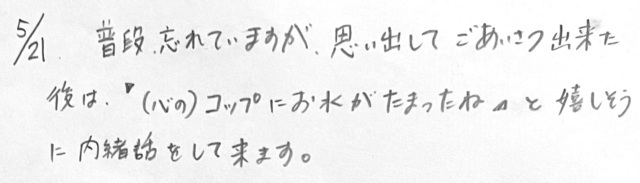 5/21. 普段、忘れていますが、思い出してごあいさつ出来た
後は、「(心の)コップにお水がたまったね」と嬉しそう
に内緒話をして来ます。